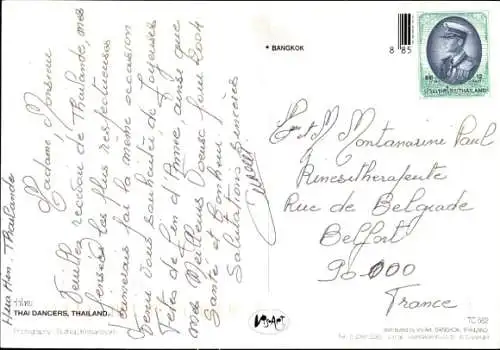 Hua Hin - Thaïlande
Madame, Monsieur
Veuillez recevoir de Thaïlande, mes
pensées les plus respectueuses
J'aimerais par la même occasion
venir vous souhaiter de Joyeuses
Fêtes de Fin d'Année, ainsi que
mes Meilleurs Voeux pour 2004
Santé et Bonheur!
Salutations sincères
รำไทย
THAI DANCERS, THAILAND.
• BANGKOK
8 85
THAILAND
E & M Montanarine Paul
Kinesithérapeute
Rue de Belgrade
Belfort
90 000
France
TC 562